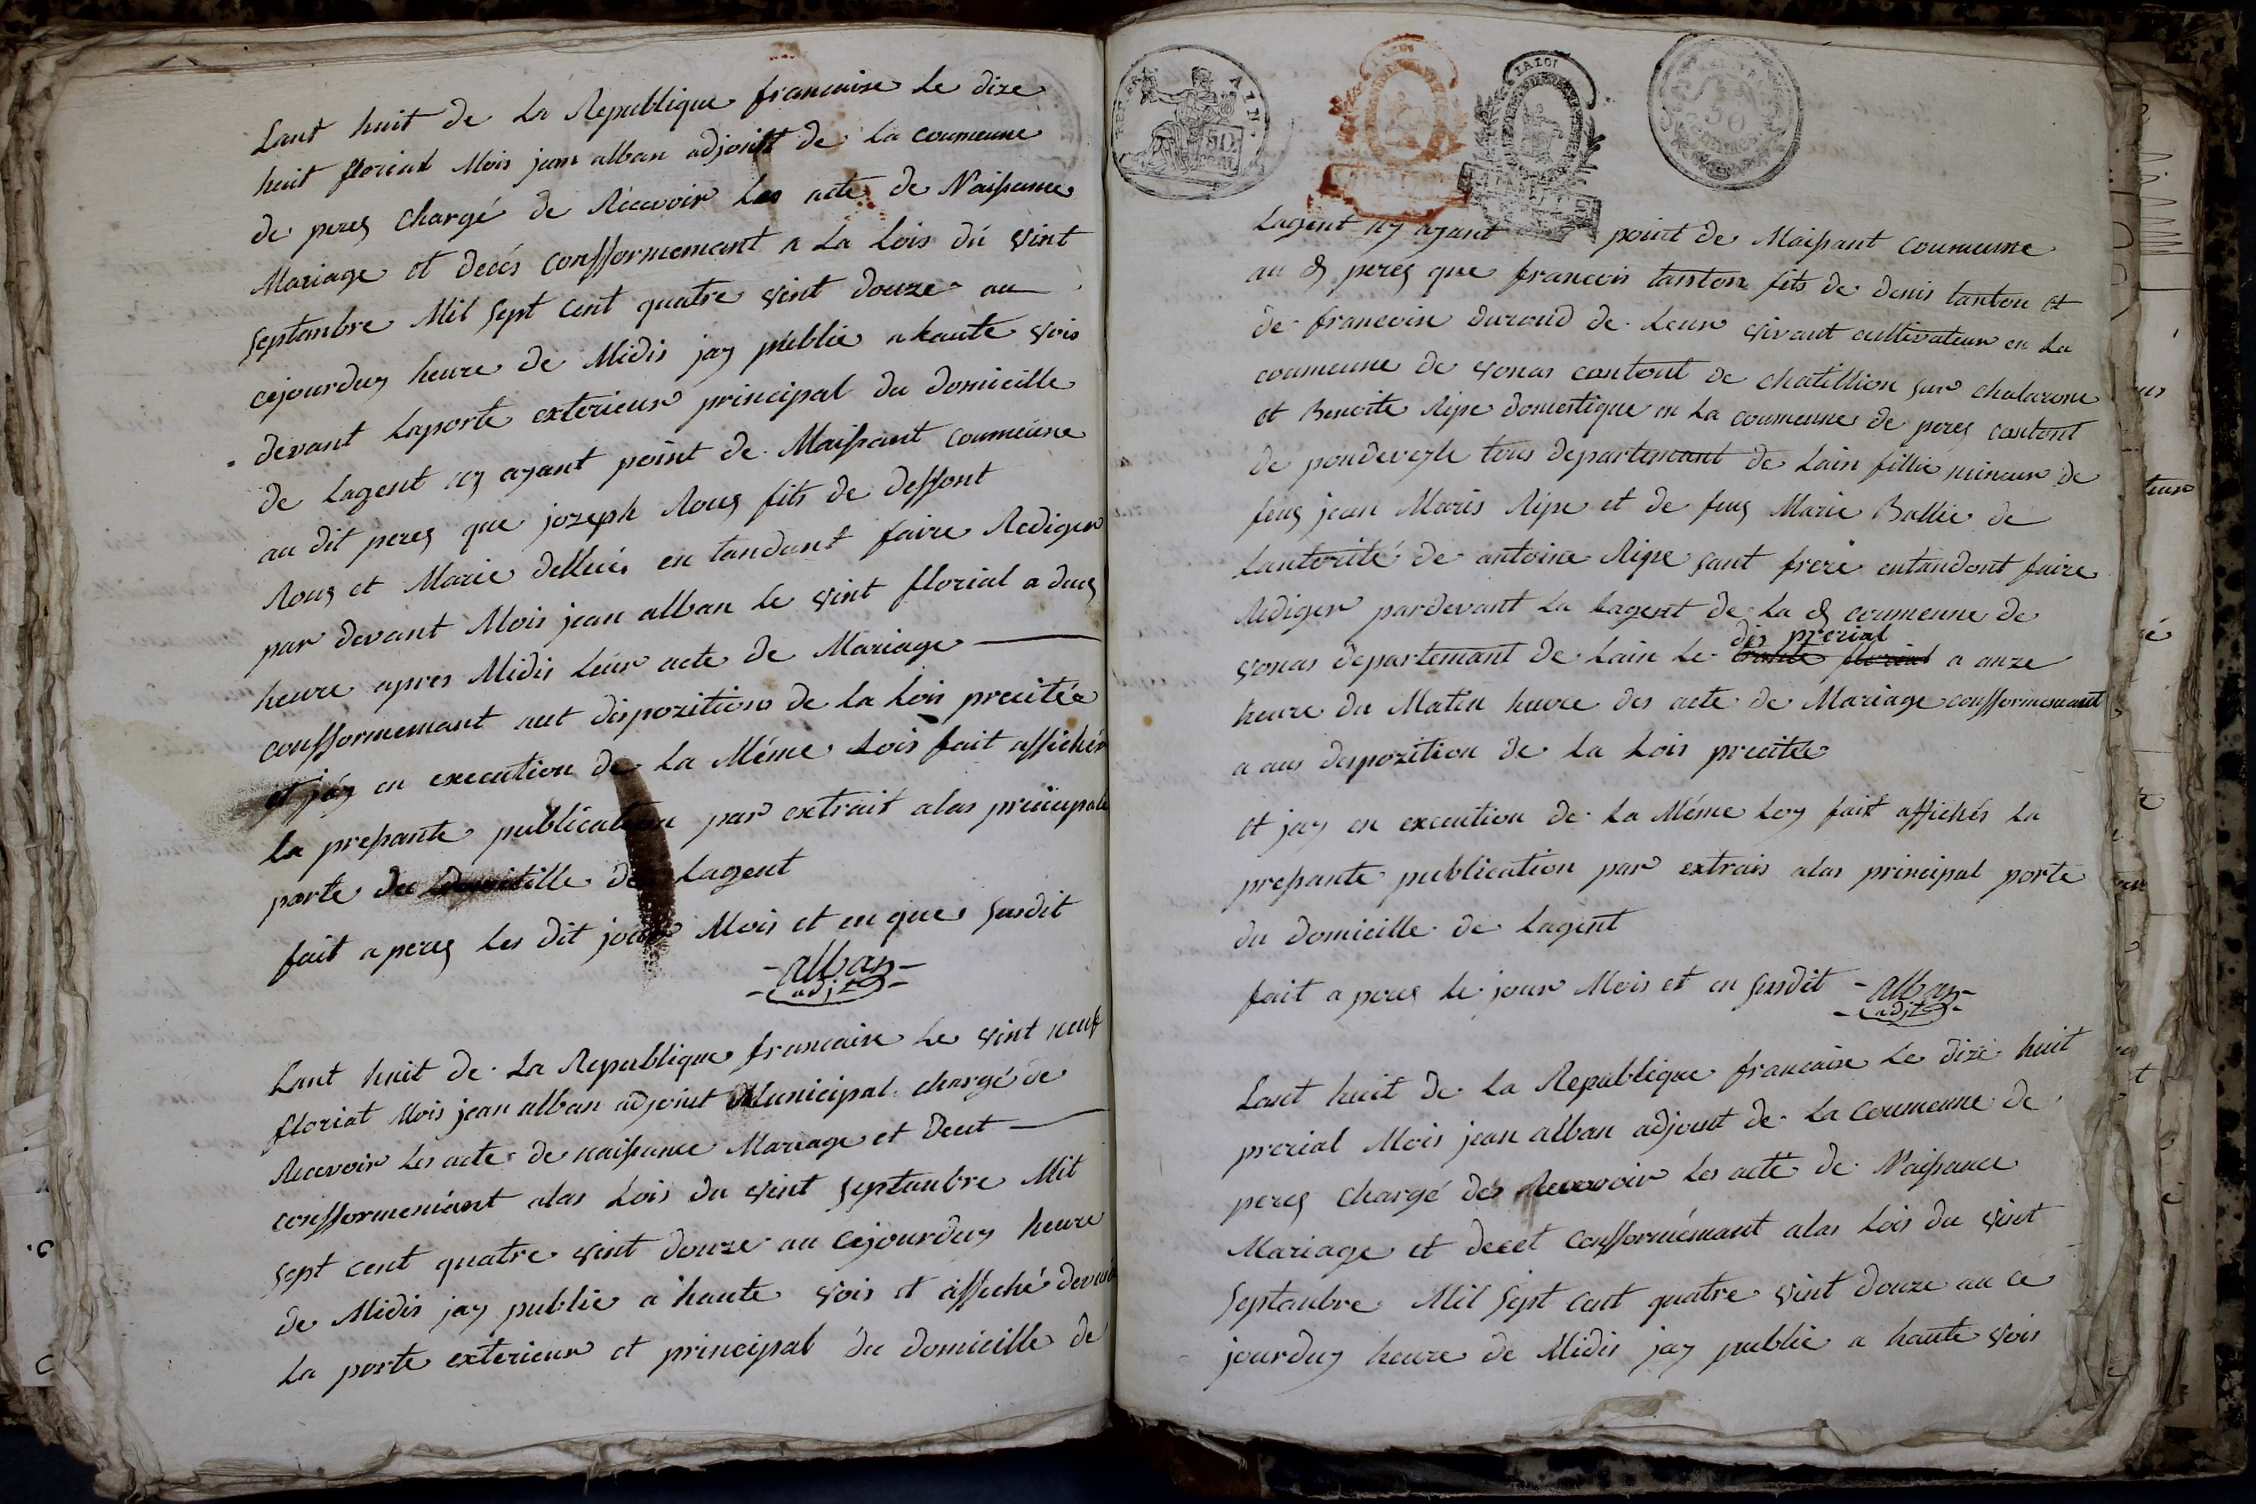 Lant huit de La Republique francaise Le dize
huit florial Mois jean alban adjoint de La coumeune
de perex Chargé de Recevoir Les acte de Naissance
Mariage et decés consformement a La Lois du vint
septanbre Mil sept cent quatre vint douze au
cejourduy heure de Midis jay publie a haute vois
devant Laporte exterieur principal du domicille
de Lagent ny ayant point de Maissant coumeune
au dit perex que jozeph Roux fits de deffont
Roux et Marie en tandant faire Rediger
par devant Mois jean alban le vint florial a deux
heure apres Midis Leur acte de Mariage
consformemant aut dispozitions de la Lois precitée
et jay en execution de La Méme Lois fait affichér
la pressante publication par extrait alas principale
porte du domicille de Lagent
fait a perex Les dit jour Mois et en que susdit
alban
adjt
Lant huit de La Republique francaise Le vint neuf
florial Mois jean alban adjoint Municipal chargé de
Recevoir Les acte de naissance Mariage et decet
consformemant alas Lois du vint septanbre Mil
sept cent quatre vint douze au cejourduy heure
de Midis jay publie a haute vois et affiché devant
La porte exterieur et principal du domicille de
FER. ERAIN.
50
LA LOI
LA LOI
50
Lagent ny ayant point de Maissant coumeune
au d perex que francois tanton fits de denis tanton et
de francoise durand de Leur vivant cultivateur en La
coumeune de vonas cantont de chatillion sur chalarone
et Benoite Ripe domestique en La coumeune de perex cantont
de pondeveyle tous departemant de Lain fillie mineur de
feux jean Maris Ripe et de feux Marie Ballie de
Lautorité de antoine Ripe sant frere entandont faire
Rediger pardevant La Lagent de La d coumeune de
dix prerial
vonas departemant de Lain Le trante florial a onze
heure du Matin heure des acte de Mariage consformemant
a aus dispozition de La Lois precitée
et jay en execution de La Méme Loy fait affichés La
pressante publication par extrais alas principal porte
du domicille de Lagent
fait a perex Le jour Mois et en susdit alban
adjt
Lant huit de La Republique francaise Le dize huit
prerial Mois jean alban adjount de La coumeune de
perex Chargé des Recevoir Les acte de Naissance
Mariage et decet consformémant alas Lois du vint
septanbre Mil sept cent quatre vint douze au ce
jourduy heure de Midis jay publie a haute vois